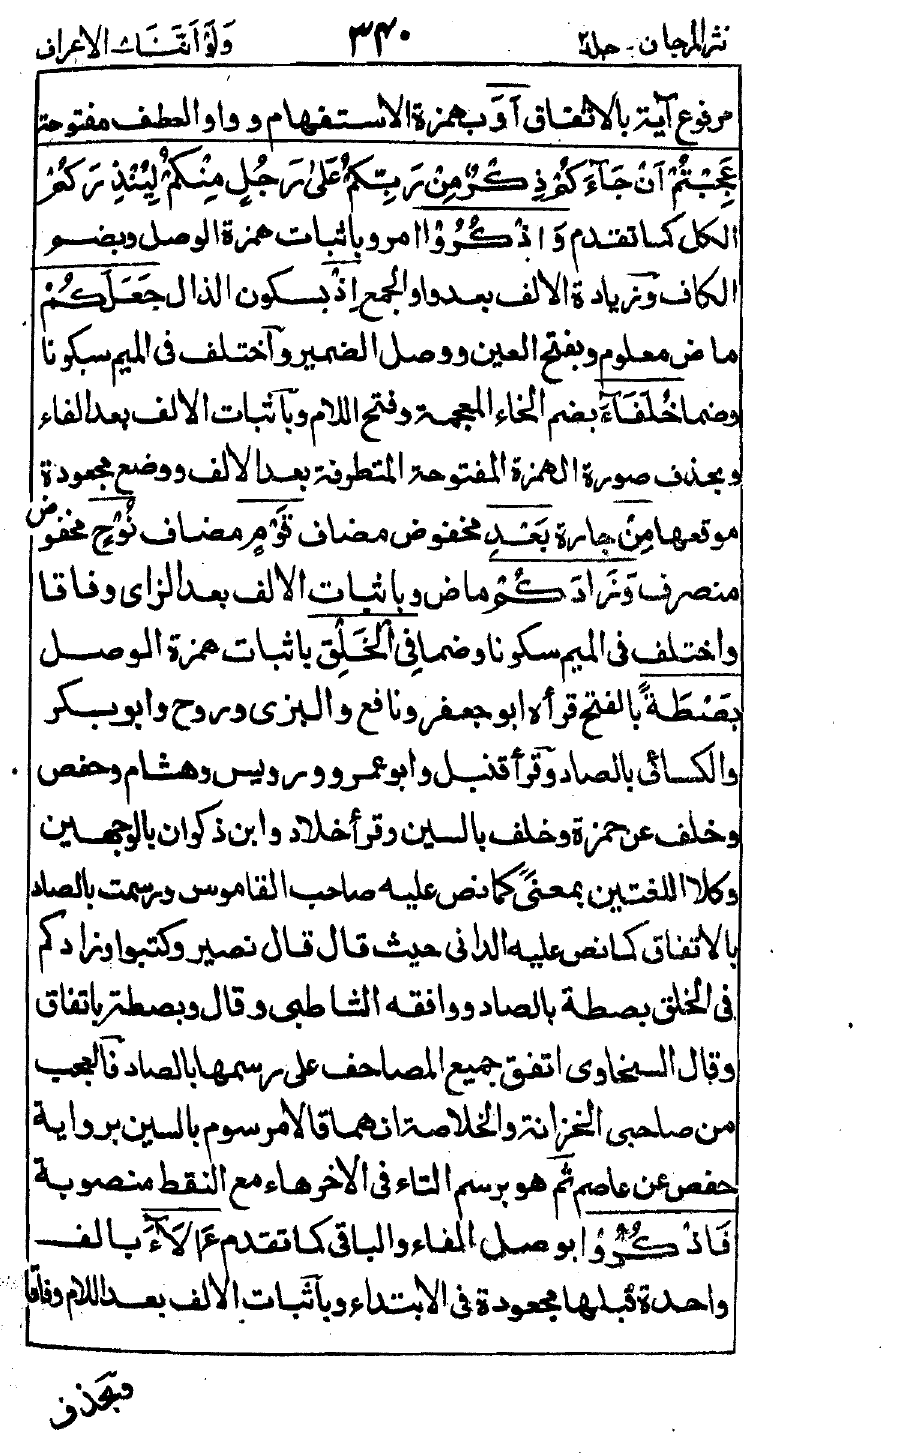 نثر المرجان - جلد ٢ ٣٤٠ ولو اننا ـ الاعراف
مرفوع آية بالاتفاق اَوَ بهمزة الاستفهام و واو العطف مفتوحتين
عَجِبْتُمْ اَنْ جَآءَكُمْ ذِكْرٌ مِنْ رَبِّكُمْ عَلٰى رَجُلٍ مِنْكُمْ لِيُنْذِرَكُمْ
الكل كما تقدم وَاذْكُرُوْا امر وباثبات همزة الوصل وبضم
الكاف وزيادة الالف بعد واو الجمع اِذْ بسكون الذال جَعَلَكُمْ
ماض معلوم وبفتح العين ووصل الضمير واختلف فى الميم سكونا
وضما خُلَفَآءَ بضم الخاء المعجمة وفتح اللام وباثبات الالف بعد الفاء
وبحذف صورة الهمزة المفتوحة المتطرفة بعد الالف ووضع مجعودة
موقعها مِنْ جارة بَعْدِ مخفوض مضاف قَوْمِ مضاف نُوْحٍ مخفوض
منصرف وَّزَادَكُمْ ماض وباثبات الالف بعد الزاى وفاقا
واختلف فى الميم سكونا وضما فِى الْخَلْقِ باثبات همزة الوصل
بَصْطَةً بالفتح قرأه ابو جعفر ونافع والبزى وروح وابو بكر
والكسائى بالصاد وقرأ قنبل وابو عمرو ورويس وهشام وحفص
وخلف عن حمزة وخلف بالسين وقرأ خلاد وابن ذكوان بالوجهين
وكلا اللغتين بمعنىً كما نص عليه صاحب القاموس ورسمت بالصاد
بالاتفاق كما نص عليه الدانى حيث قال قال نصير وكتبوا وزادكم
فى الخلق بصطة بالصاد ووافقه الشاطبى وقال وبصطة باتفاق
وقال السخاوى اتفق جميع المصاحف على رسمها بالصاد فالعجب
من صاحبى الخزانة والخلاصة انهما قالا مرسوم بالسين برواية
حفص عن عاصم ثم هو برسم التاء فى الآخر هاء مع النقط منصوبة
فَاذْكُرُوْا بوصل الفاء والباقى كما تقدم ءَالَآءَ بالف
واحدة قبلها مجعودة فى الابتداء وباثبات الالف بعد اللام وفاقا
وبحذف